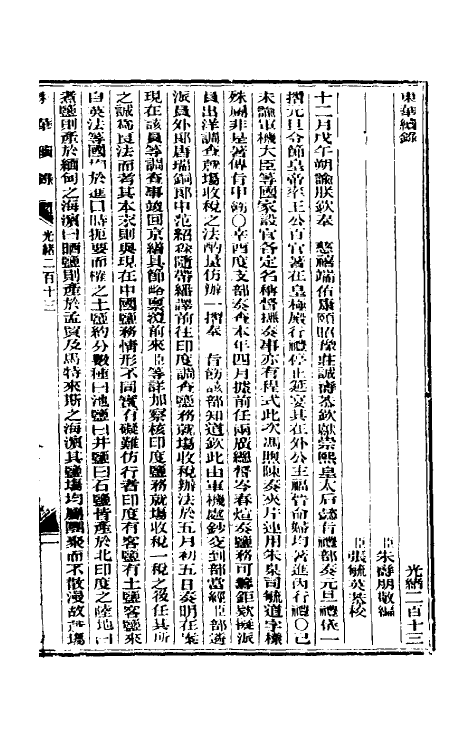 東華續錄
光緒二百十三
臣朱壽朋敬編
臣張毓英恭校
十二月戊午朔諭朕欽奉 慈禧端佑康頤昭豫莊誠壽恭欽獻崇熙皇太后懿旨禮部奏元旦禮儀一
摺元旦令節皇帝率王公百官著在皇極殿行禮停止筵宴其在外公主福晉命婦均著進內行禮〇己
未諭軍機大臣等國家設官各定名稱督撫奏事亦有程式此次馮煦陳奏夾片連用朱臬司毓道字樣
殊屬非是著傳旨申飭〇辛酉度支部奏查本年四月據前任兩廣總督岑春煊奏鹽務可籌鉅款擬派
員出洋調查就場收稅之法酌量仿辦一摺奉 旨飭該部知道欽此由軍機處鈔交到部當經臣部遴
派員外郎唐瑞銅郎中范紹森隨帶繙譯前往印度調查鹽務就場收稅辦法於五月初五日奏明在案
現在該員等調查事竣回京繕具節略稟覆前來臣等詳加察核印度鹽務就場收稅一稅之後任其所
之誠為良法而者其本末則與現在中國鹽務情形不同實有礙難仿行者印度有客鹽有土鹽客鹽來
自英法等國 於進口時扼要而榷之土鹽約分數種曰池鹽曰井鹽曰石鹽皆產於北印度之陸地曰
煮鹽則產於緬甸之海濱曰晒鹽則產於孟買及馬特來斯之海濱其鹽場均屬團聚而不散漫故 場
華續錄 光緒二百十三
一